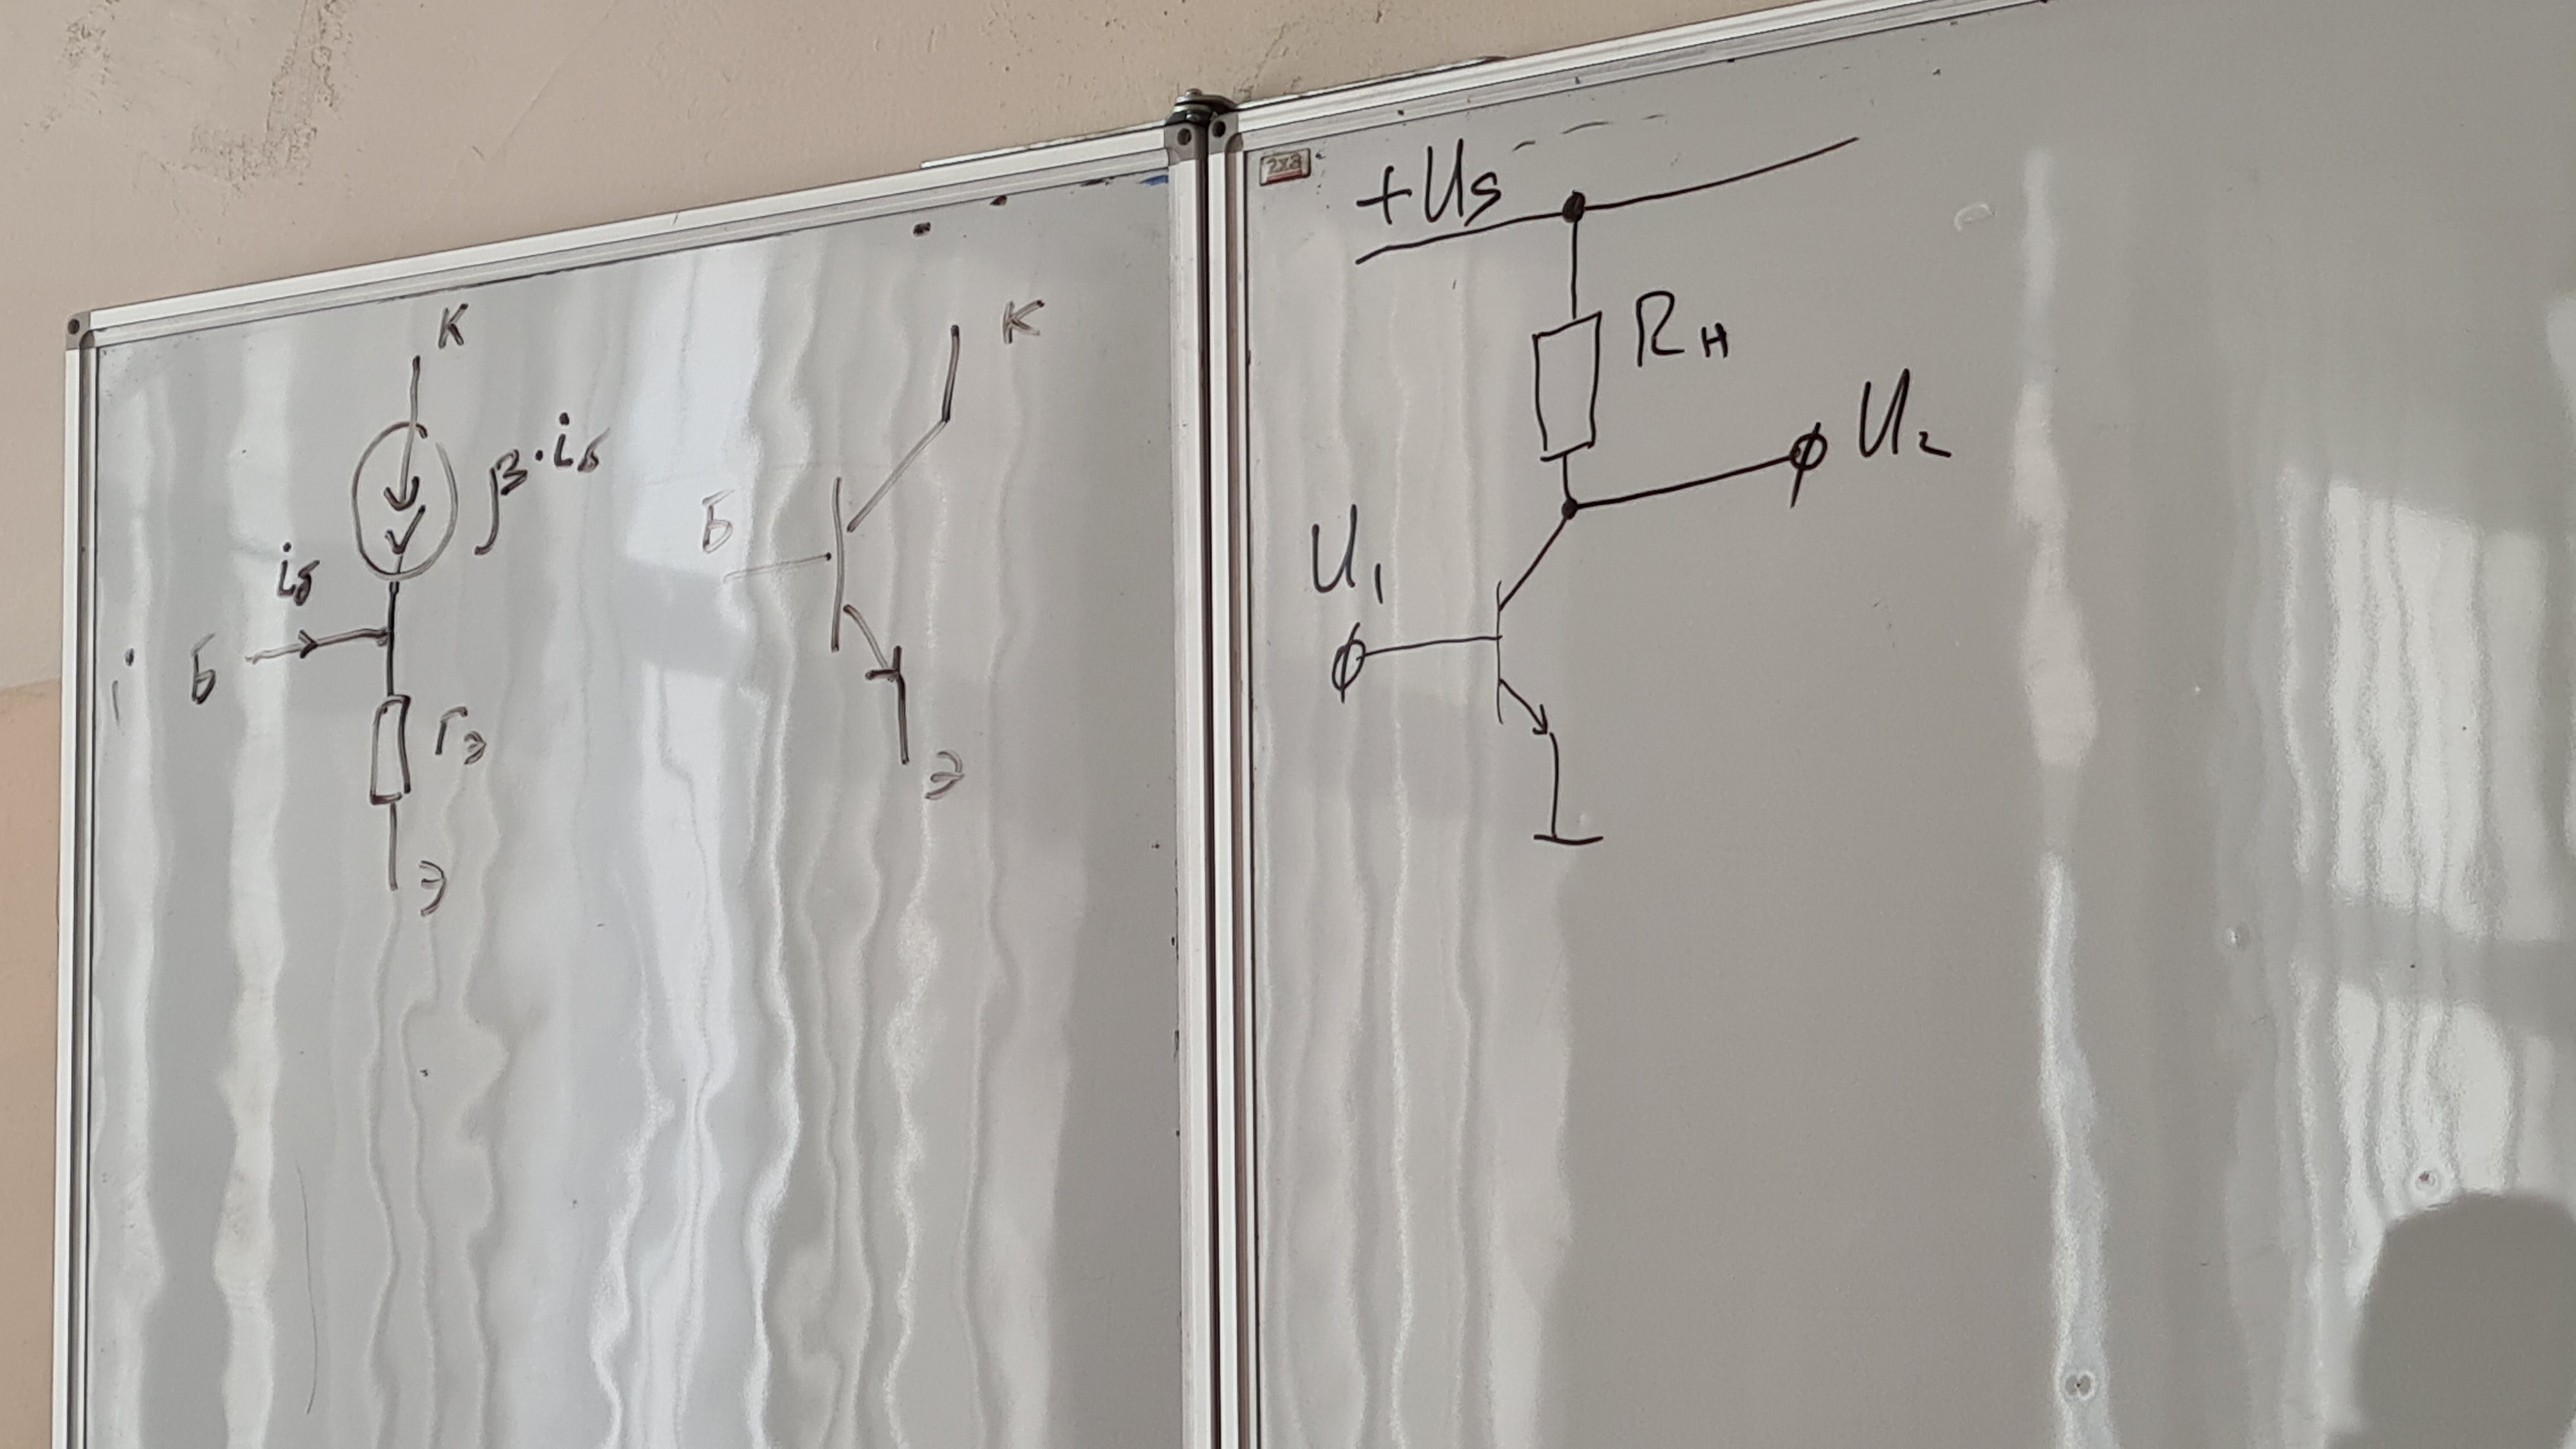 К
β·iб
iб
Б
rэ
Э
К
Б
Э
2x3
+Us
Rн
U₂
U₁